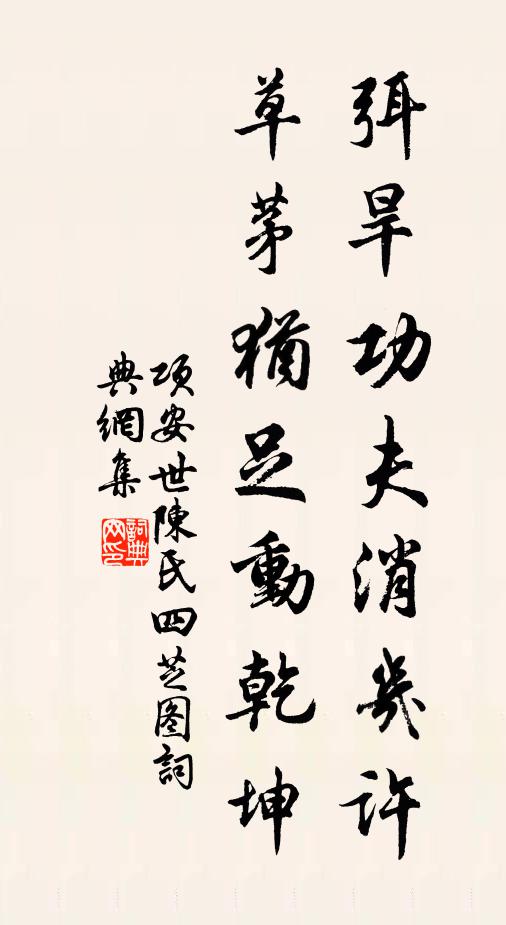 弭旱功夫消幾許
草茅猶足動乾坤
項安世陳氏四芝图詞
典網集
詞典
网印